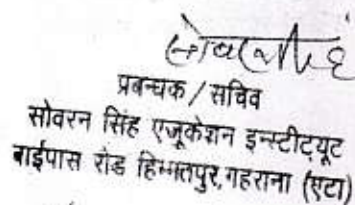 प्रबन्धक / सचिव
सोवरन सिंह एजूकेशन इन्स्टीट्यूट
बाईपास रोड हिम्मतपुर, गहराना (एटा)